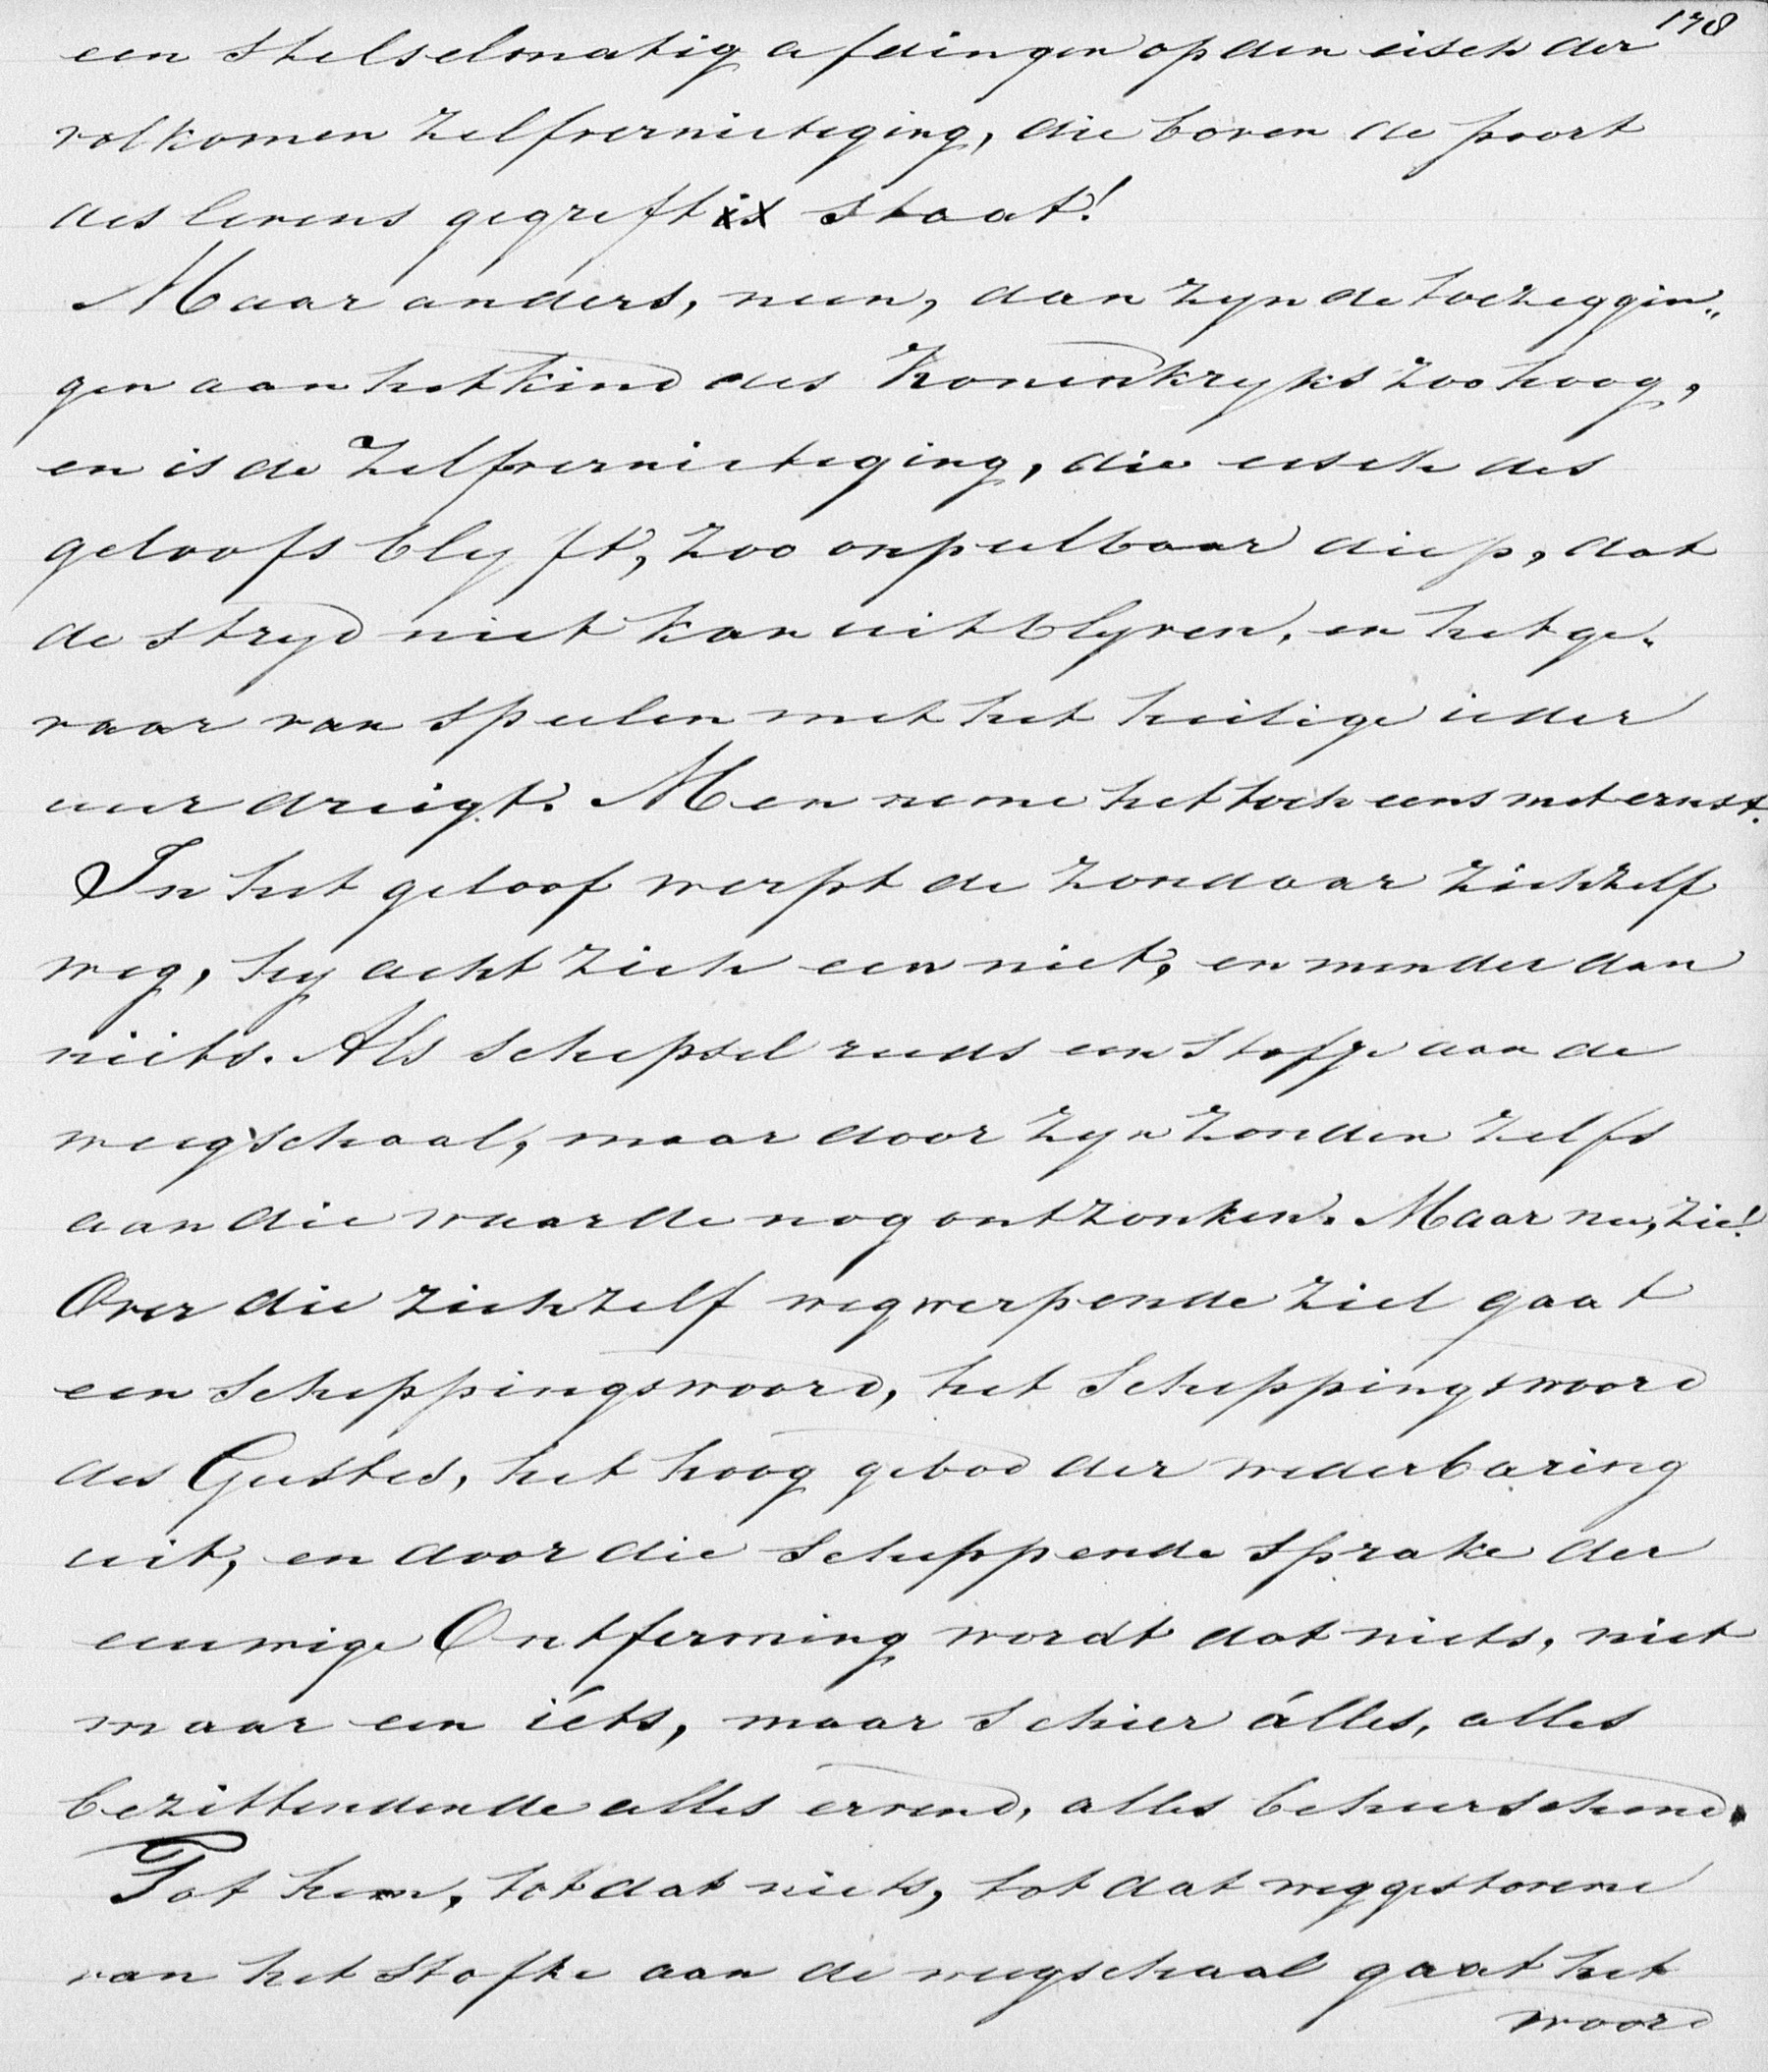 178
een stelselmatig afdingen op den eisch der
volkomen zelfvernietiging, die boven de poort
des levens gegrift is staat!
Maar anders, neen, dan zyn de toezeggin„
gen aan het kind des Koninkryks zoo hoog,
en is de zelfvernietiging, die eisch des
geloofs blyft, zoo onpeilbaar diep, dat
de stryd niet kan uitblyven, en het ge„
vaar van spelen met het heilige ieder
uur dreigt. Men neme het toch eens met ernst.
In het geloof werpt de zondaar zichzelf
weg, hy acht zich een niet, en minder dan
niets. Als schepsel reeds een stofje aan de
weegschaal, maar door zyn zonden zelfs
aan die waarde nog ontzonken. Maar nu, zie!
Over die zichzelf wegwerpende ziel gaat
een scheppingswoord, het scheppingswoord
des Geestes, het hoog gebod der wederbaring
uit, en door die scheppende sprake der
eeuwige Ontferming wordt dat niets, niet
maar een iéts, maar schier álles, alles
bezittendende alles ervend, alles beheerschend.
Tot hem, tot dat niets, tot dat weggestovene
van het stofke aan de weegschaal gaat het
woord